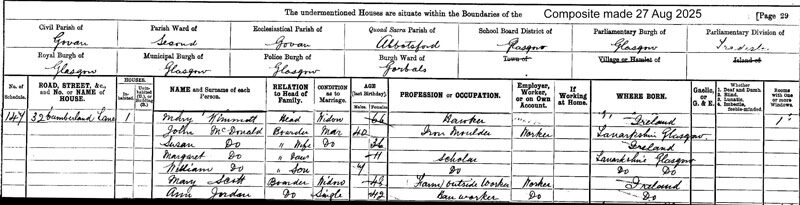 The undermentioned Houses are situate within the Boundaries of the
Composite made 27 Aug 2025
[Page 29
Civil Parish of
Govan
Parish Ward of
Second
Ecclesiastical Parish of
Govan
Quoad Sacra Parish of
Abbotsford
School Board District of
Glasgow
Parliamentary Burgh of
Glasgow
Parliamentary Division of
Tradeston
Royal Burgh of
Glasgow
Municipal Burgh of
Glasgow
Police Burgh of
Glasgow
Burgh Ward of
Gorbals
Town of
Village or Hamlet of
Island of
No. of Schedule.
ROAD, STREET, &c., and No. or NAME of HOUSE.
HOUSES.
Inhabited.
Uninhabited (U.), or Building (B.)
NAME and Surname of each Person.
RELATION to Head of Family.
CONDITION as to Marriage.
AGE (last Birthday).
Males. Females.
PROFESSION or OCCUPATION.
Employer, Worker, or on Own Account.
If Working at Home.
WHERE BORN.
Gaelic, or G. & E.
Whether
1. Deaf and Dumb.
2. Blind.
3. Lunatic.
4. Imbecile, feeble-minded.
Rooms with one or more Windows.
147 32 Cumberland Lane 1 Mary Head Widow 66 Hawker Ireland 1
John McDonald Boarder Mar 40 Iron Moulder Worker Lanarkshire Glasgow
Susan Do " Wife Do 36 Ireland
Margaret Do " Daur 11 Scholar Lanarkshire Glasgow
William Do " Son 9 Do Do Do
Mary Scott Boarder Widow 43 Farm outside Worker Worker Ireland
Ann Jordan Do Single 42 worker Do Do